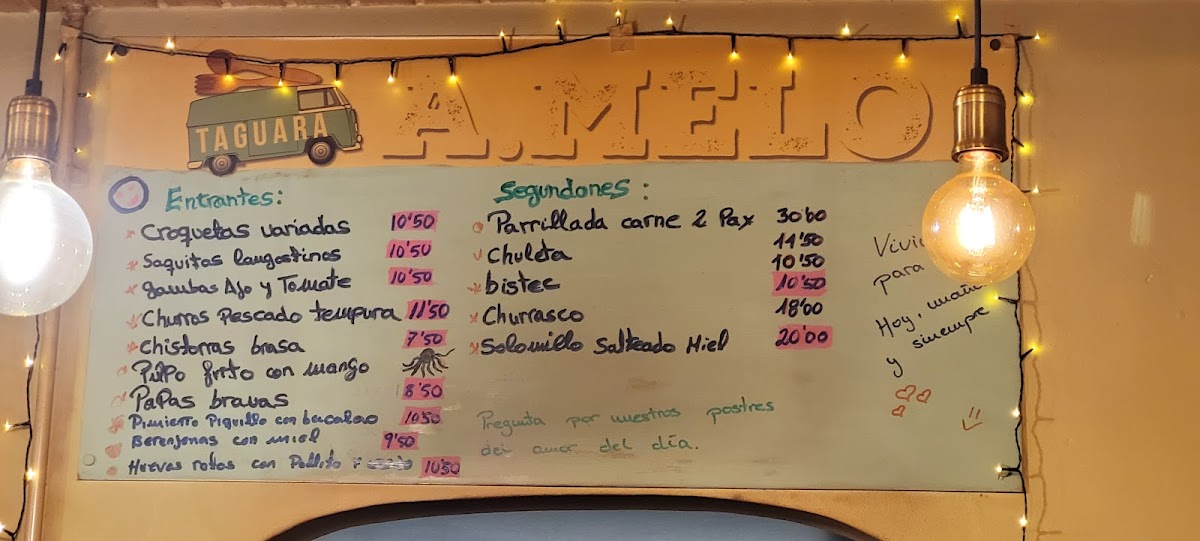 TAGUARA
A.MELO
Entrantes:
Croquetas variadas 10'50
Saquitas langostinos 10'50
gambas Ajo y Tomate 10'50
Churros Pescado tempura 11'50
Chistorras brasa 7'50
Pulpo frito con mango
Papas bravas 8'50
Pimiento Piquillo con bacalao 10'50
Berenjenas con miel 9'50
Huevos rotos con Pollito 10'50
Segundones:
Parrillada carne 2 Pax 30'00
11'50
Chuleta 10'50
bistec 10'50
Churrasco 18'00
Solomillo Salteado Miel 20'00
Pregunta por nuestros postres
del amor del día.
para
Hoy,
y siempre